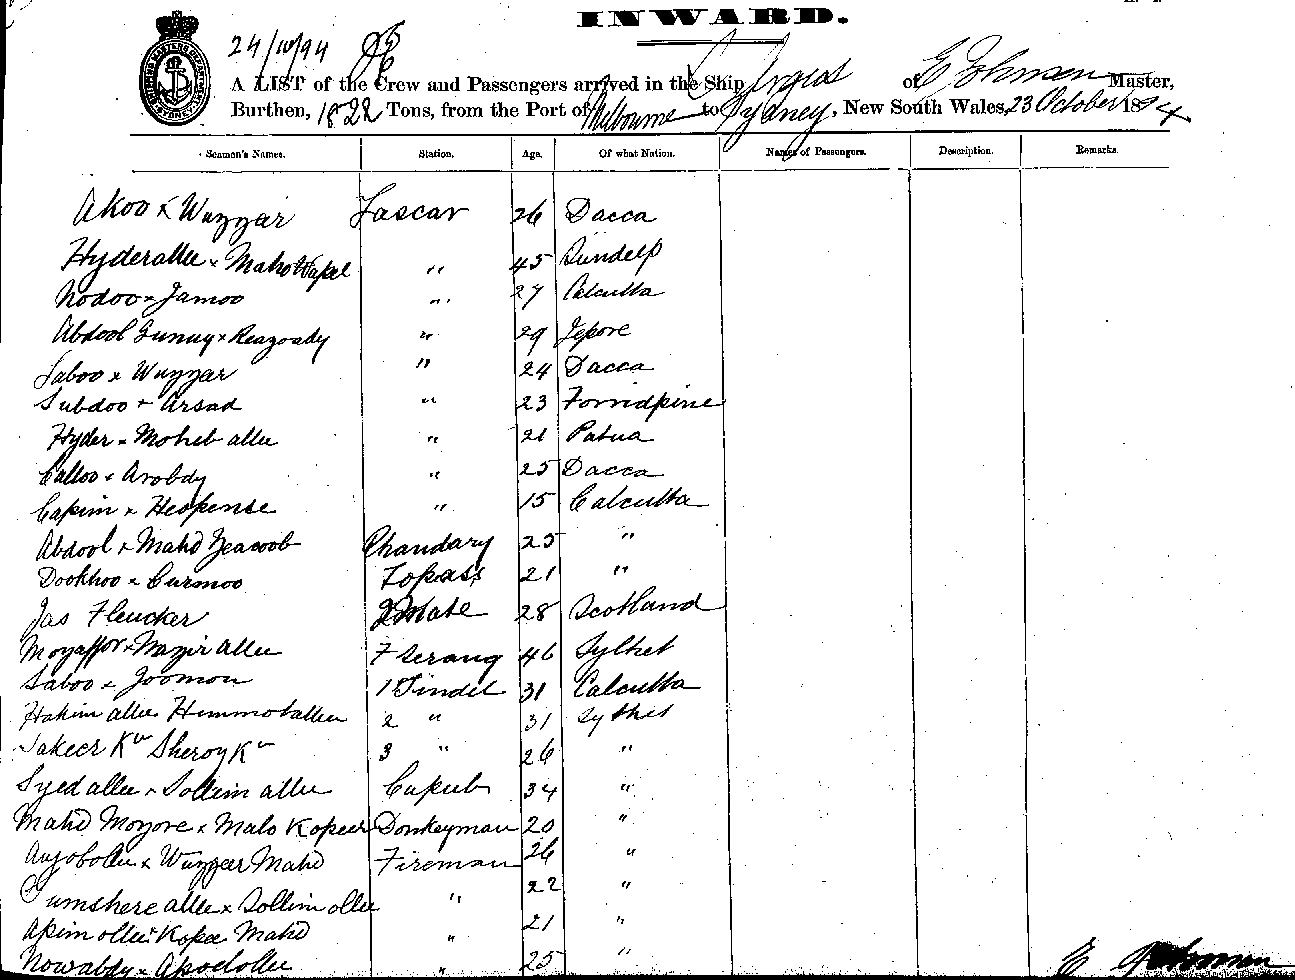 INWARD.
24/10/94
A LIST of the Crew and Passengers arrived in the Ship Argus of E Johnson Master,
Burthen, 1822 Tons, from the Port of Melbourne to Sydney, New South Wales, 23 October 1894
Seamen's Names. Station. Age. Of what Nation. Names of Passengers. Description. Remarks.
Akoo x Wuzzair Lascar 26 Dacca
Hyderallee x Maho " 45 Sundelp
Nodoo x Jamoo " 27 Calcutta
Abdool Gunny x Reazoody " 29 Jepore
Saboo x Wuzzar " 24 Dacca
Subdoo x Arsad " 23 Forridpine
Hyder x Moheb allee " 21 Patua
Calloo x Arobdy " 25 Dacca
Capim x Hespense " 15 Calcutta
Abdool x Mahd Yeacoob Chandary 25 "
Dookhoo x Curmoo Topass 21 "
Jas Fleucker 2 Mate 28 Scotland
Moyaffor x Nazir allee F Serang 46 Sylhet
Saboo x Joomon 1 Tindel 31 Calcutta
Hakim allee Himmotallee 2 " 31 Sylhet
Jakeer Kn Sheroy Kn 3 " 26 "
Syed allee x Sollim allee Cupub 34 "
Mahd Moyore x Malo Kopeer Donkeyman 20 "
Anjobollee x Wuzzeer Mahd Fireman 26 "
Cumshere allee x Sollim ollee " 22 "
Apim ollee x Kopee Mahd " 21 "
Nowabdy x Apoelollee " 25 "
E Johnson